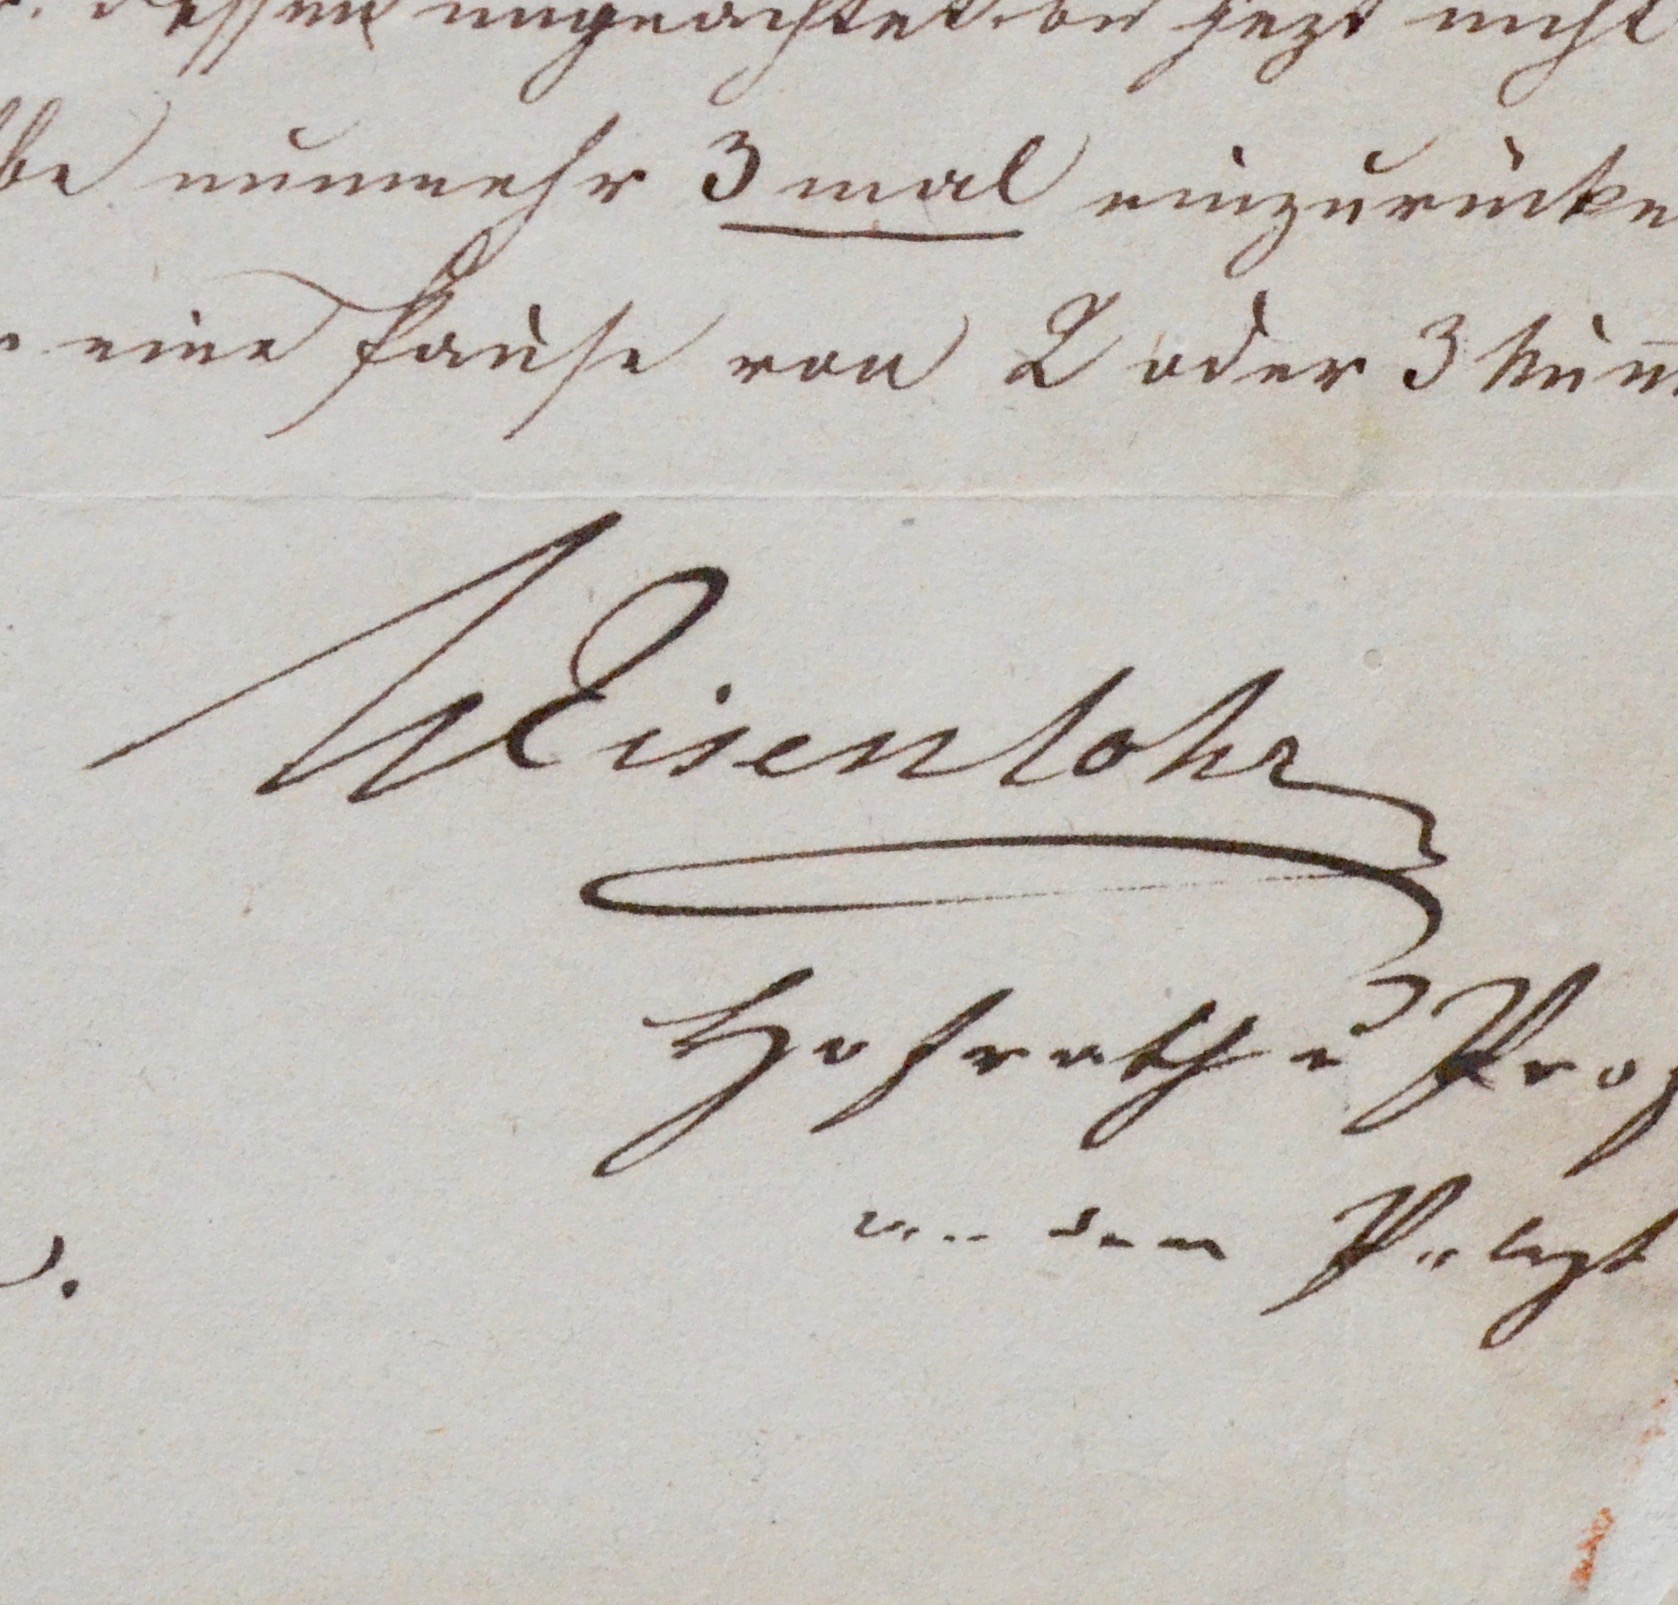 dessen ungeachtet bis jezt nicht
be nunmehr 3 mal einzurücke
eine Pause von 2 oder 3 Num
W Eisenlohr
Hofrath u Prof
an dem Polyt